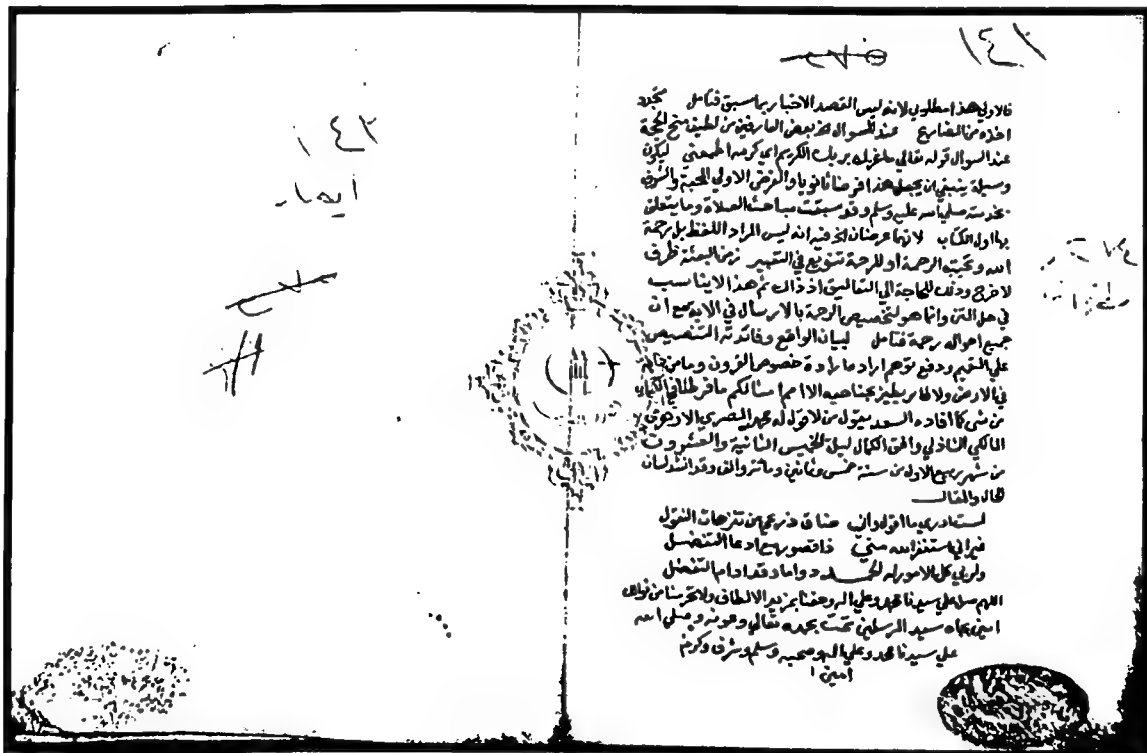 ١٤٢
فالاولي هذا مطلوبي لانه ليس القصد الاخبار بما سبق فتامل مجدد
اخذه من المضارع عند السوال اخذ بعض العارفين من لطيف منح الحجة
عند السوال قوله تعالي ما غرك بربك الكريم اي كرمه اطمعني ليكون
وسيلة ينبغي ان يجعل هذا غرضا ثانويا والغرض الاولي المحبة والتشرف
بخدمته صلي الله عليه وسلم وقد سبقت مباحث الصلاة وما يتعلق
بها اول الكتاب لانها عرضان الخ فيه انه ليس المراد اللفظ بل رحمة
الله وتحيته الرحمة او للرحمة تنويع في التعبير زمن البعثة ظرف
لا فرح وذلك للحاجة الي التعاليق اذ ذاك ثم هذا لا يناسب
في حل المتن وانما هو لتخصيص الرحمة بالارسال في الاية مع ان
جميع احواله رحمة فتامل لبيان الواقع وفائدته التنصيص
علي التعميم ودفع توهم ارادة خصوص القرون وما من دابة
في الارض ولا طاير يطير بجناحيه الا امم امثالكم ما فرطنا في الكتاب
من شي كما افاده السعد يقول من لا قول له محمد المصري الازهري
المالكي الشاذلي وافق الكمال ليلة الخميس الثانية والعشرون
من شهر ربيع الاول من سنة خمس وثمانين ومائة والف وقد انشد لسان
الحال والقال
لست ادري ما اقول واني ضاق ذرعي من ترهات النقول
غير اني استغفر الله مني ذا قصور مع ادعا التفضل
ولربي كل الامور له الحمد دواما وقد ادام التفضل
اللهم صل علي سيدنا محمد وعلي اله وحفنا بمزيد الالطاف ولا تحرمنا من نواله
امين بجاه سيد المرسلين تمت بحمد الله تعالي وعونه وصلي الله
علي سيدنا محمد وعلي اله وصحبه وسلم وشرف وكرم
امين